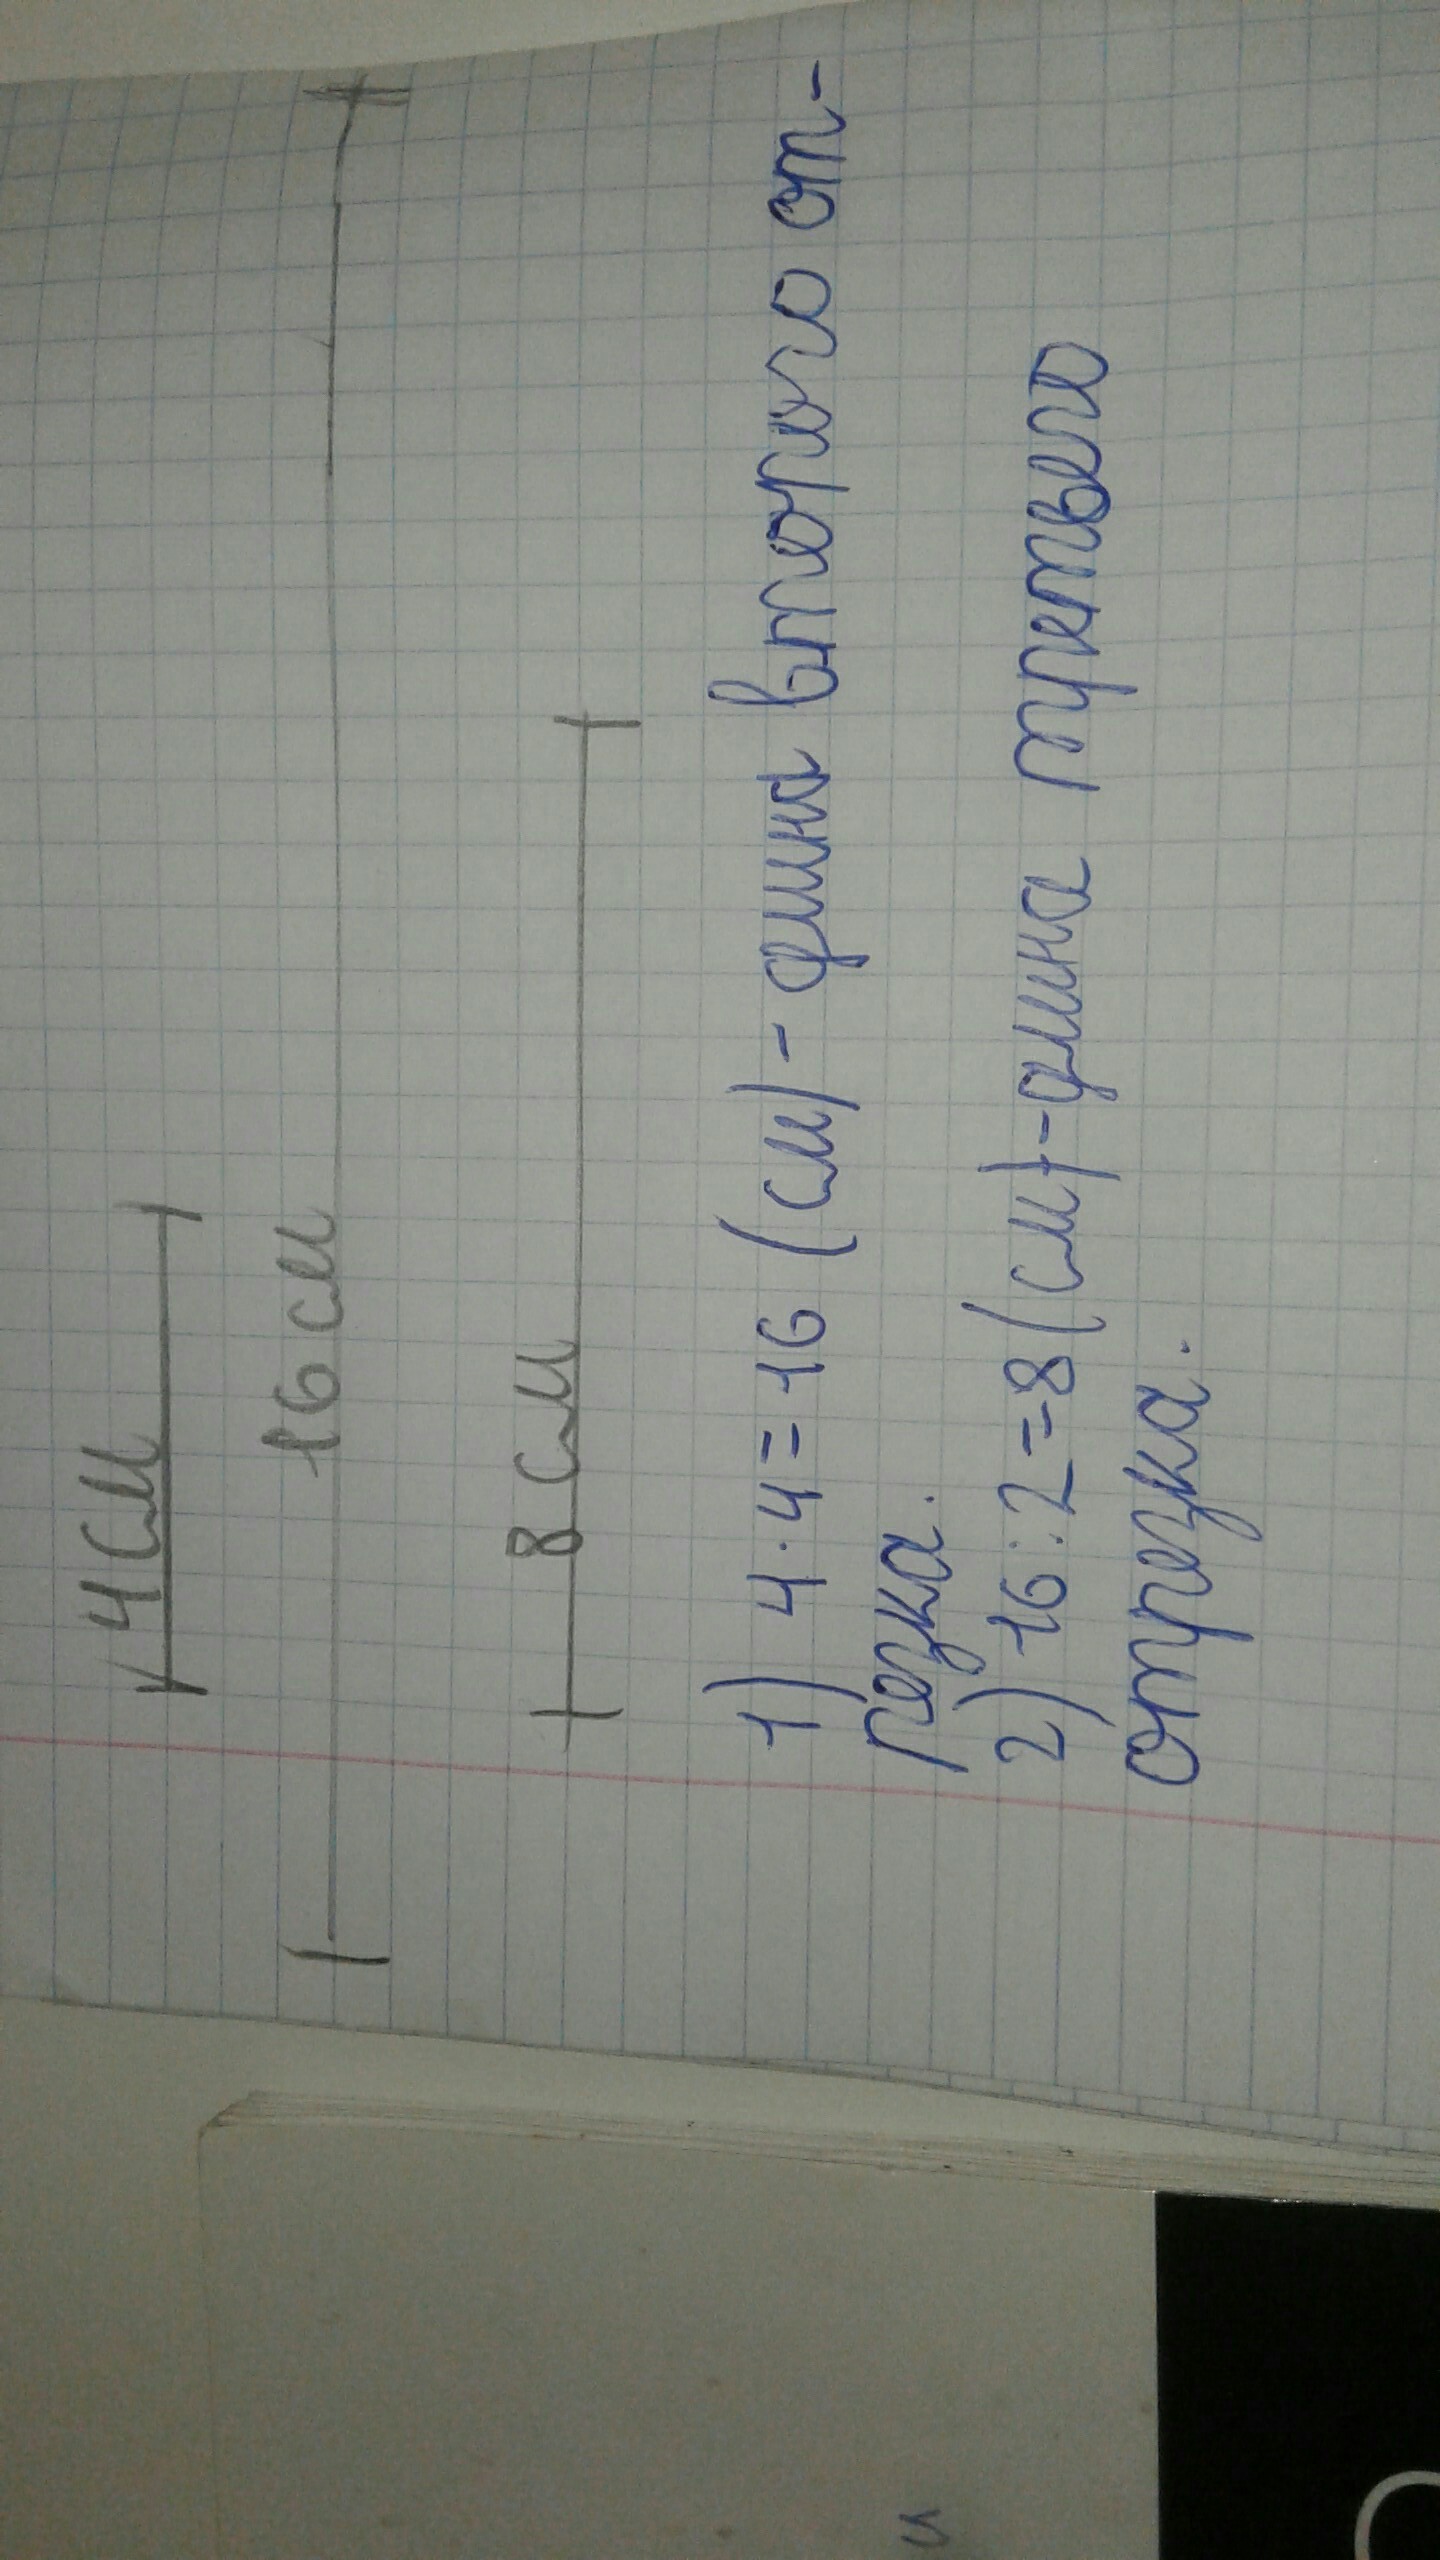 4 см
16 см
8 см
1) 4·4=16 (см) - длина второго от-
резка.
2) 16:2=8(см)-длина третьего
отрезка.